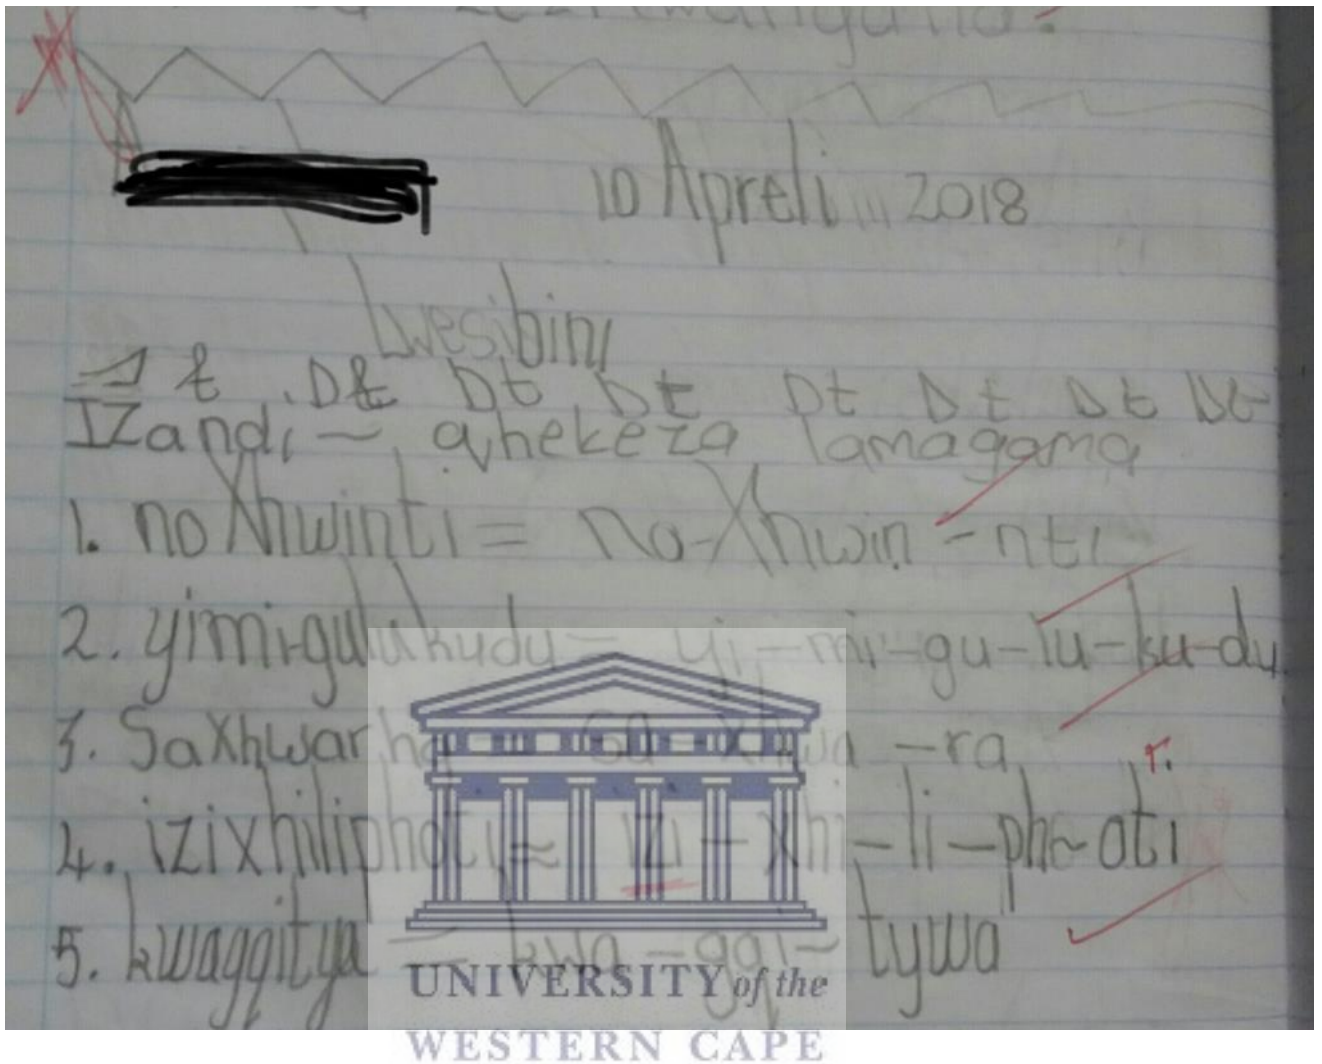 10 Apreli 2018
Lwesibini
Dt Dt Dt Dt Dt Dt Dt
IZandi - qhekeza lamagama
1. noXhwinti = no-Xhwin-nti
2. yimigulukudu = yi-mi-gu-lu-ku-du
3. SaXhwarha = Sa-xhwa-ra
r.
4. izixhiliphoti = izi-xhi-li-ph-oti
5. kwaqqitya = kwa-qqi-tywa
UNIVERSITY of the
WESTERN CAPE